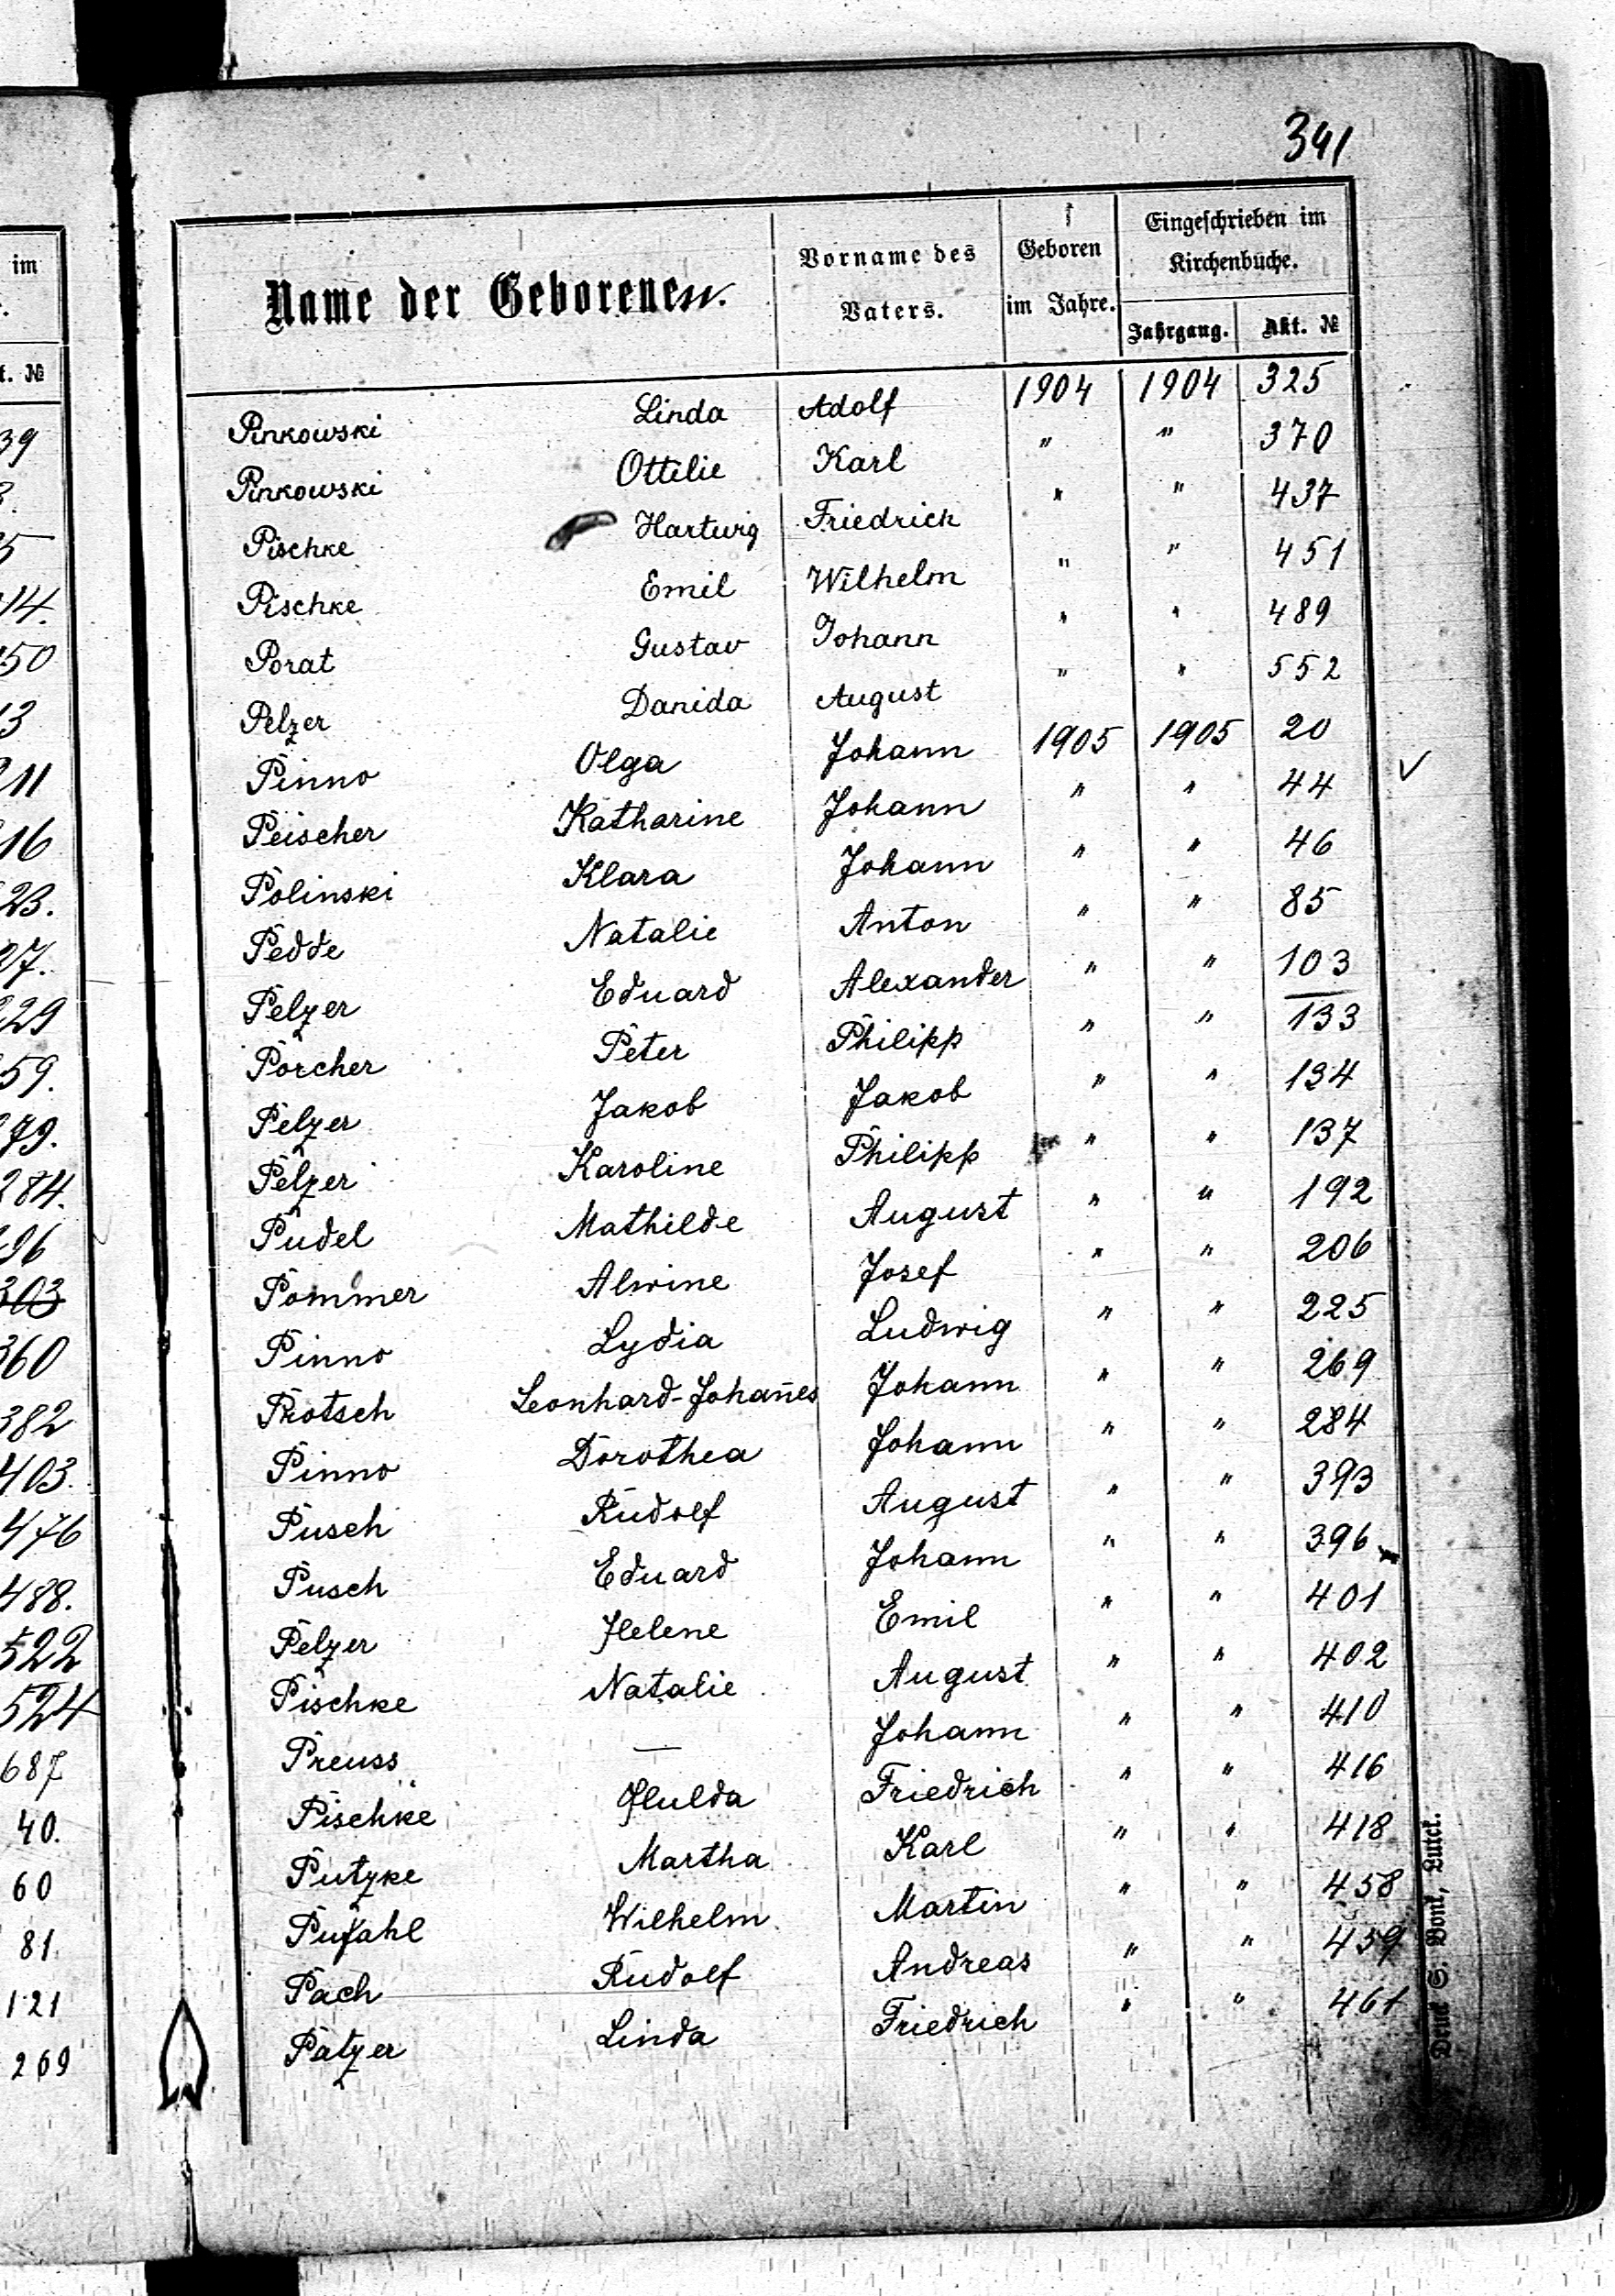 341
im
t. №
39
8.
5
14.
50
13
211
16
23.
27.
229
59.
279.
284.
296
303
360
382
403.
476
488.
522
524
687
40.
60
81
121
269
Name der Geborenen.
Vorname des Vaters.
Geboren im Jahre.
Eingeschrieben im Kirchenbuche.
Jahrgang.
Akt. №
Pinkowski Linda Adolf 1904 1904 325
Pinkowski Ottilie Karl " " 370
Pischke Hartwig Friedrich " " 437
Pischke Emil Wilhelm " " 451
Porat Gustav Johann " " 489
Pelzer Danida August " " 552
Pinno Olga Johann 1905 1905 20
Peischer Katharine Johann " " 44 ✓
Polinski Klara Johann " " 46
Pedde Natalie Anton " " 85
Pelzer Eduard Alexander " " 103
Porcher Peter Philipp " " 133
Pelzer Jakob Jakob " " 134
Pelzer Karoline Philipp " " 137
Pudel Mathilde August " " 192
Pommer Alwine Josef " " 206
Pinno Lydia Ludwig " " 225
Protsch Leonhard-Johan̄es Johann " " 269
Pinno Dorothea Johann " " 284
Pusch Rudolf August " " 393
Pusch Eduard Johann " " 396
Pelzer Helene Emil " " 401
Pischke Natalie August " " 402
Preuss — Johann " " 410
Pischke Hulda Friedrich " " 416
Putzke Martha Karl " " 418
Pufahl Wilhelm Martin " " 458
Pach Rudolf Andreas " " 459
Patzer Linda Friedrich " " 461
Druck S. Bonk, Lutck.